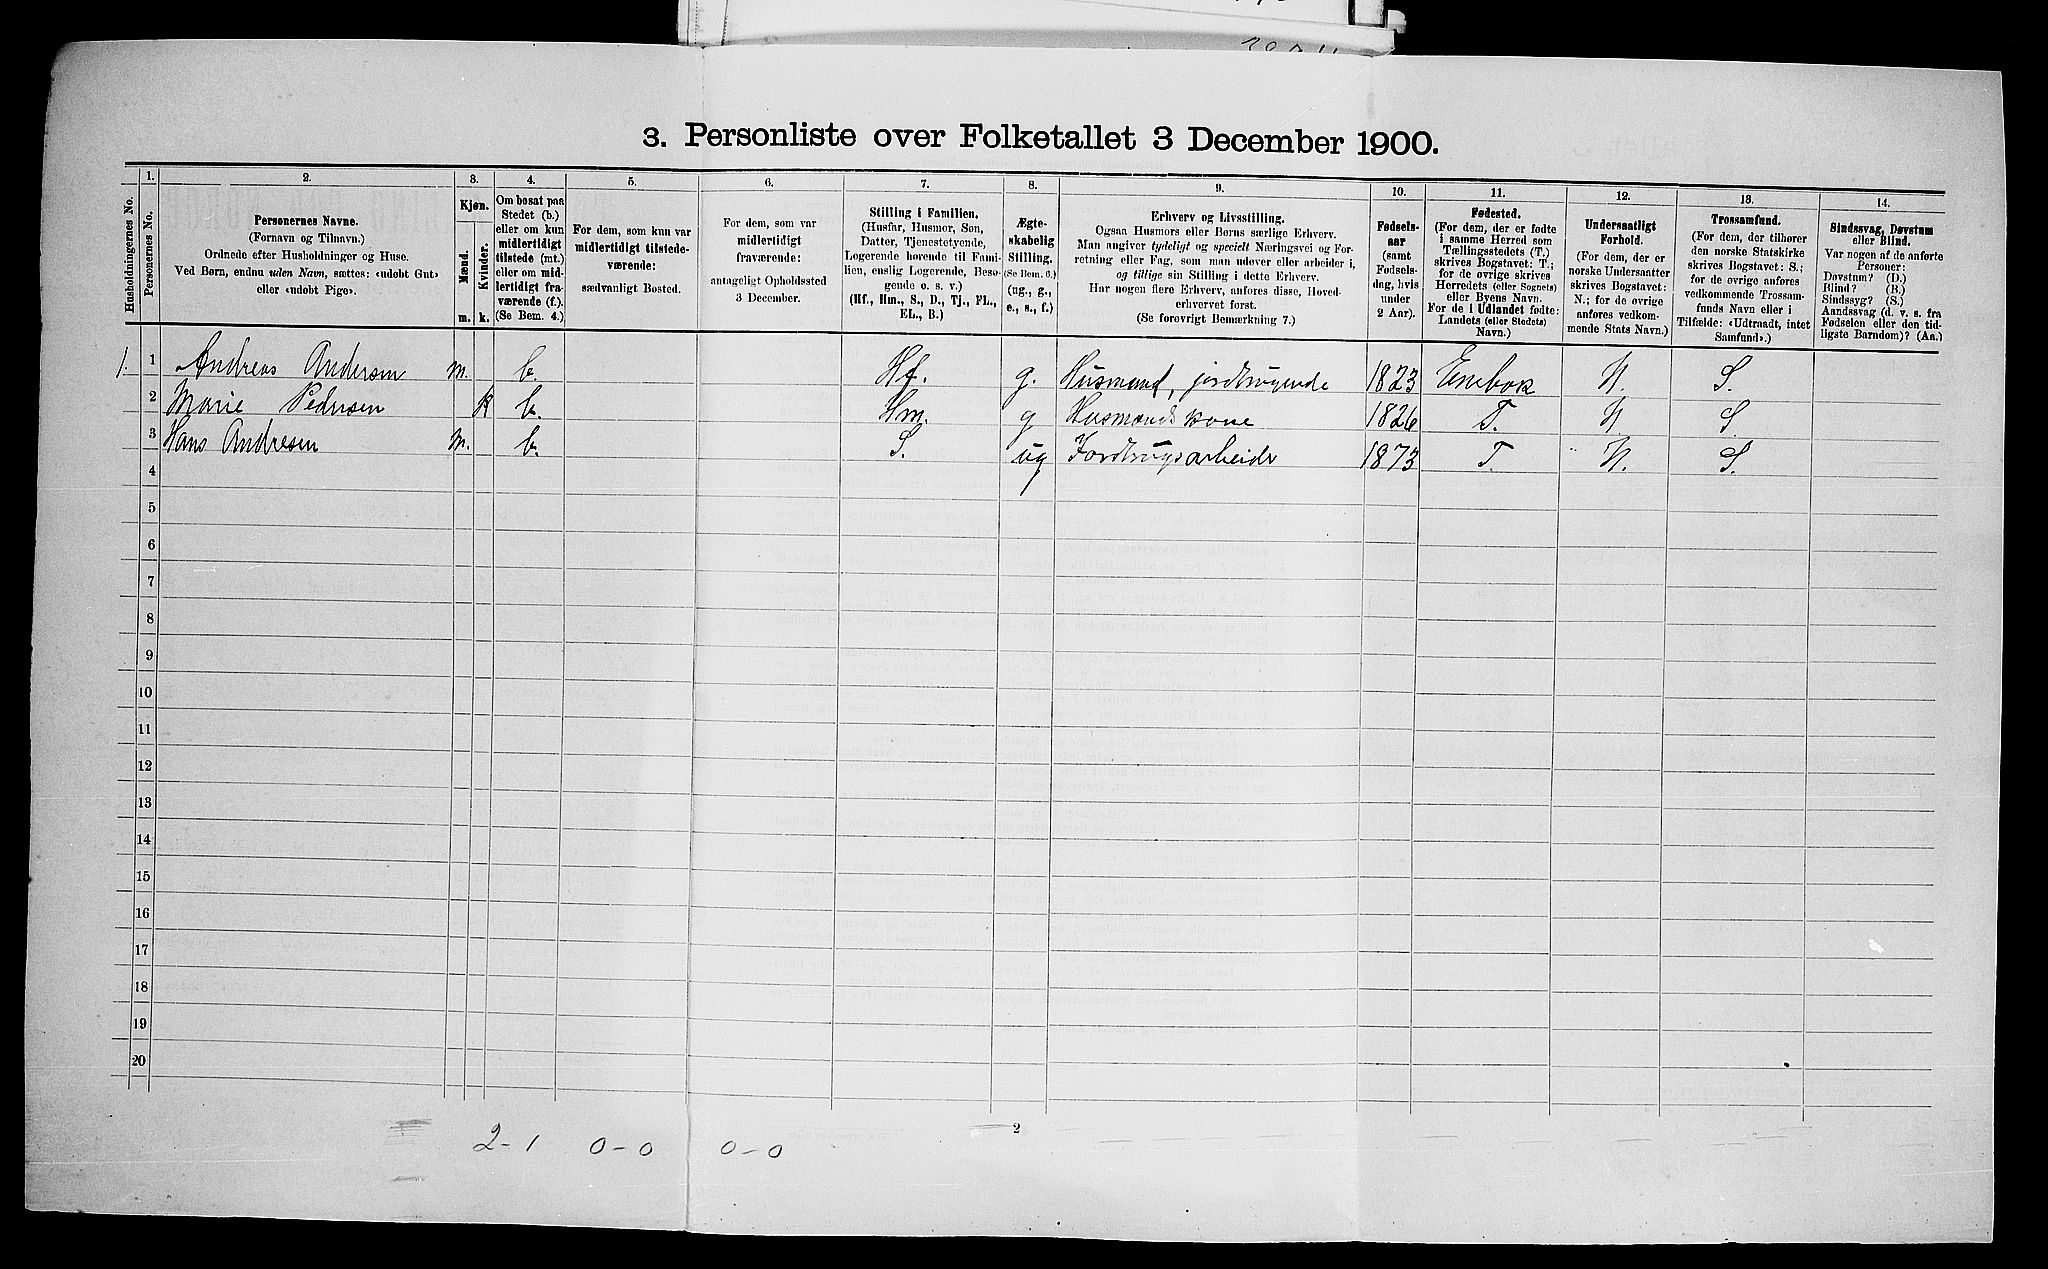 3. Personliste over Folketallet 3 December 1900.
1. 2. 3. 4. 5. 6. 7. 8. 9. 10. 11. 12. 13. 14.
Husholdningernes No.
Personernes No.
Personernes Navne.
(Fornavn og Tilnavn.)
Ordnede efter Husholdninger og Huse.
Ved Børn, endnu uden Navn, sættes: «udøbt Gut»
eller «udøbt Pige».
Kjøn.
Mænd.
Kvinder.
m. k.
Om bosat paa
Stedet (b.)
eller om kun
midlertidigt
tilstede (mt.)
eller om mid-
lertidigt fra-
værende (f.).
(Se Bem. 4.)
For dem, som kun var
midlertidigt tilstede-
værende:
sædvanligt Bosted.
For dem, som var
midlertidigt
fraværende:
antageligt Opholdssted
3 December.
Stilling i Familien.
(Husfar, Husmor, Søn,
Datter, Tjenestetyende,
Logerende hørende til Fami-
lien, enslig Logerende, Besø-
gende o. s. v.)
(Hf., Hm., S., D., Tj., FL.,
EL., B.)
Ægte-
skabelig
Stilling.
(Se Bem. 6.)
(ug., g.,
e., s., f.)
Erhverv og Livsstilling.
Ogsaa Husmors eller Børns særlige Erhverv.
Man angiver tydeligt og specielt Næringsvei og For-
retning eller Fag, som man udøver eller arbeider i,
og tillige sin Stilling i dette Erhverv.
Har nogen flere Erhverv, anføres disse, Hoved-
erhvervet først.
(Se forøvrigt Bemærkning 7.)
Fødsels-
aar
(samt
Fødsels-
dag, hvis
under
2 Aar).
Fødested.
(For dem, der er fødte
i samme Herred som
Tællingsstedets (T.)
skrives Bogstavet: T.;
for de øvrige skrives
Herredets (eller Sognets)
eller Byens Navn.
For de i Udlandet fødte:
Landets (eller Stedets)
Navn.)
Undersaatligt
Forhold.
(For dem, der er
norske Undersaatter
skrives Bogstavet:
N.; for de øvrige
anføres vedkom-
mende Stats Navn.)
Trossamfund.
(For dem, der tilhører
den norske Statskirke
skrives Bogstavet: S.;
for de øvrige anføres
vedkommende Trossam-
funds Navn eller i
Tilfælde: «Udtraadt, intet
Samfund».)
Sindssvag, Døvstum
eller Blind.
Var nogen af de anførte
Personer:
Døvstum? (D.)
Blind? (B.)
Sindssyg? (S.)
Aandssvag (d. v. s. fra
Fødselen eller den tid-
ligste Barndom)? (Aa.)
1. 1 Andreas Andersen m. b. Hf. g. Husmand, jordbrugende 1823 Enebok N. S.
2 Marie Pedersen k b. Hm. g Husmandskone 1826 T. N. S
3 Hans Andresen m. b. S. ug Jordbrugsarbeide 1873 T. N. S.
4
5
6
7
8
9
10
11
12
13
14
15
16
17
18
19
20
2
2-1 0-0 0-0